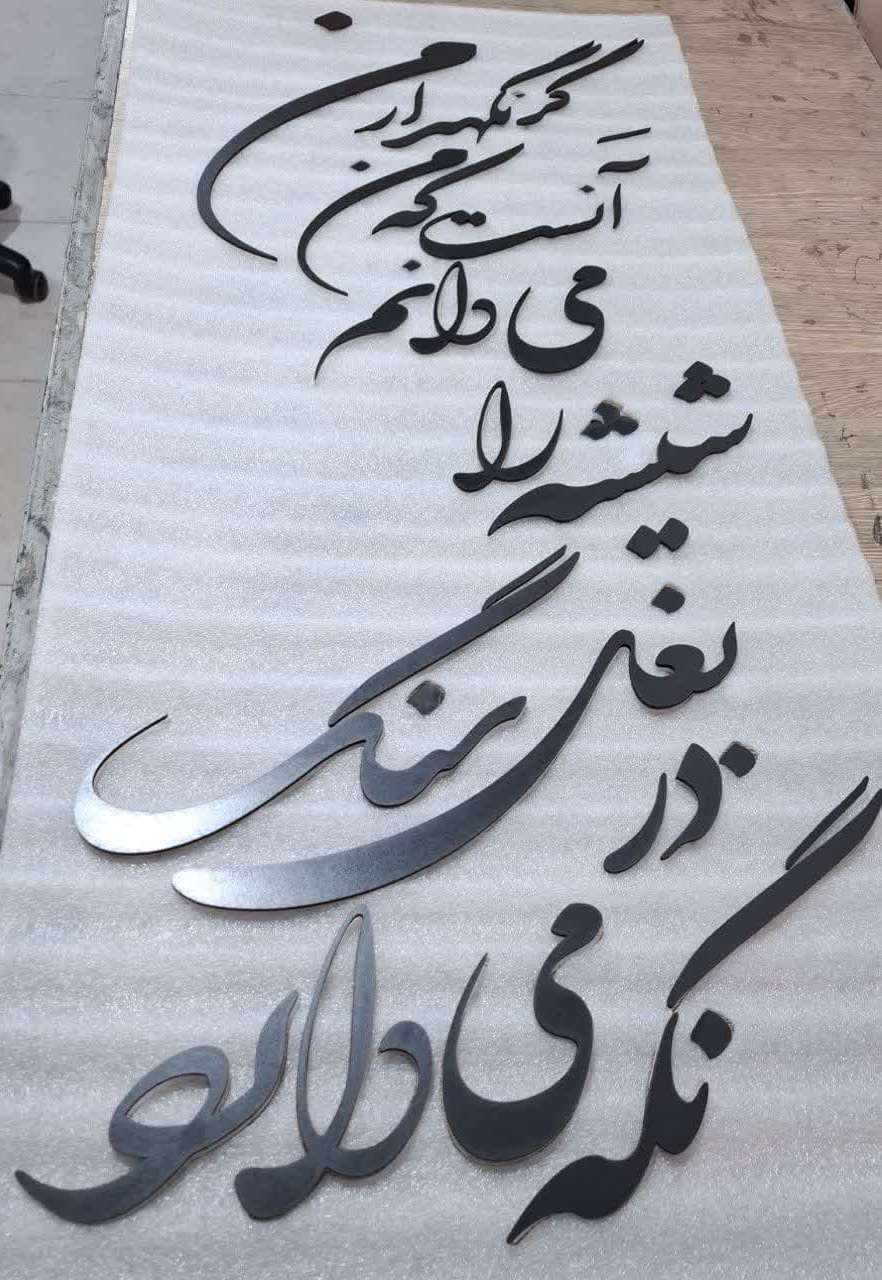 گر نگهدار من
آنست که من
می دانم
شیشه را
در بغل سنگ
نگه می دارد